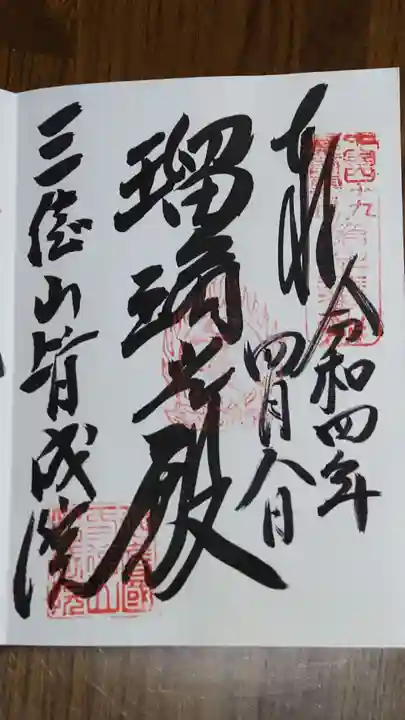 奉拝
令和四年
四月八日
瑠璃光殿
三徳山皆成院